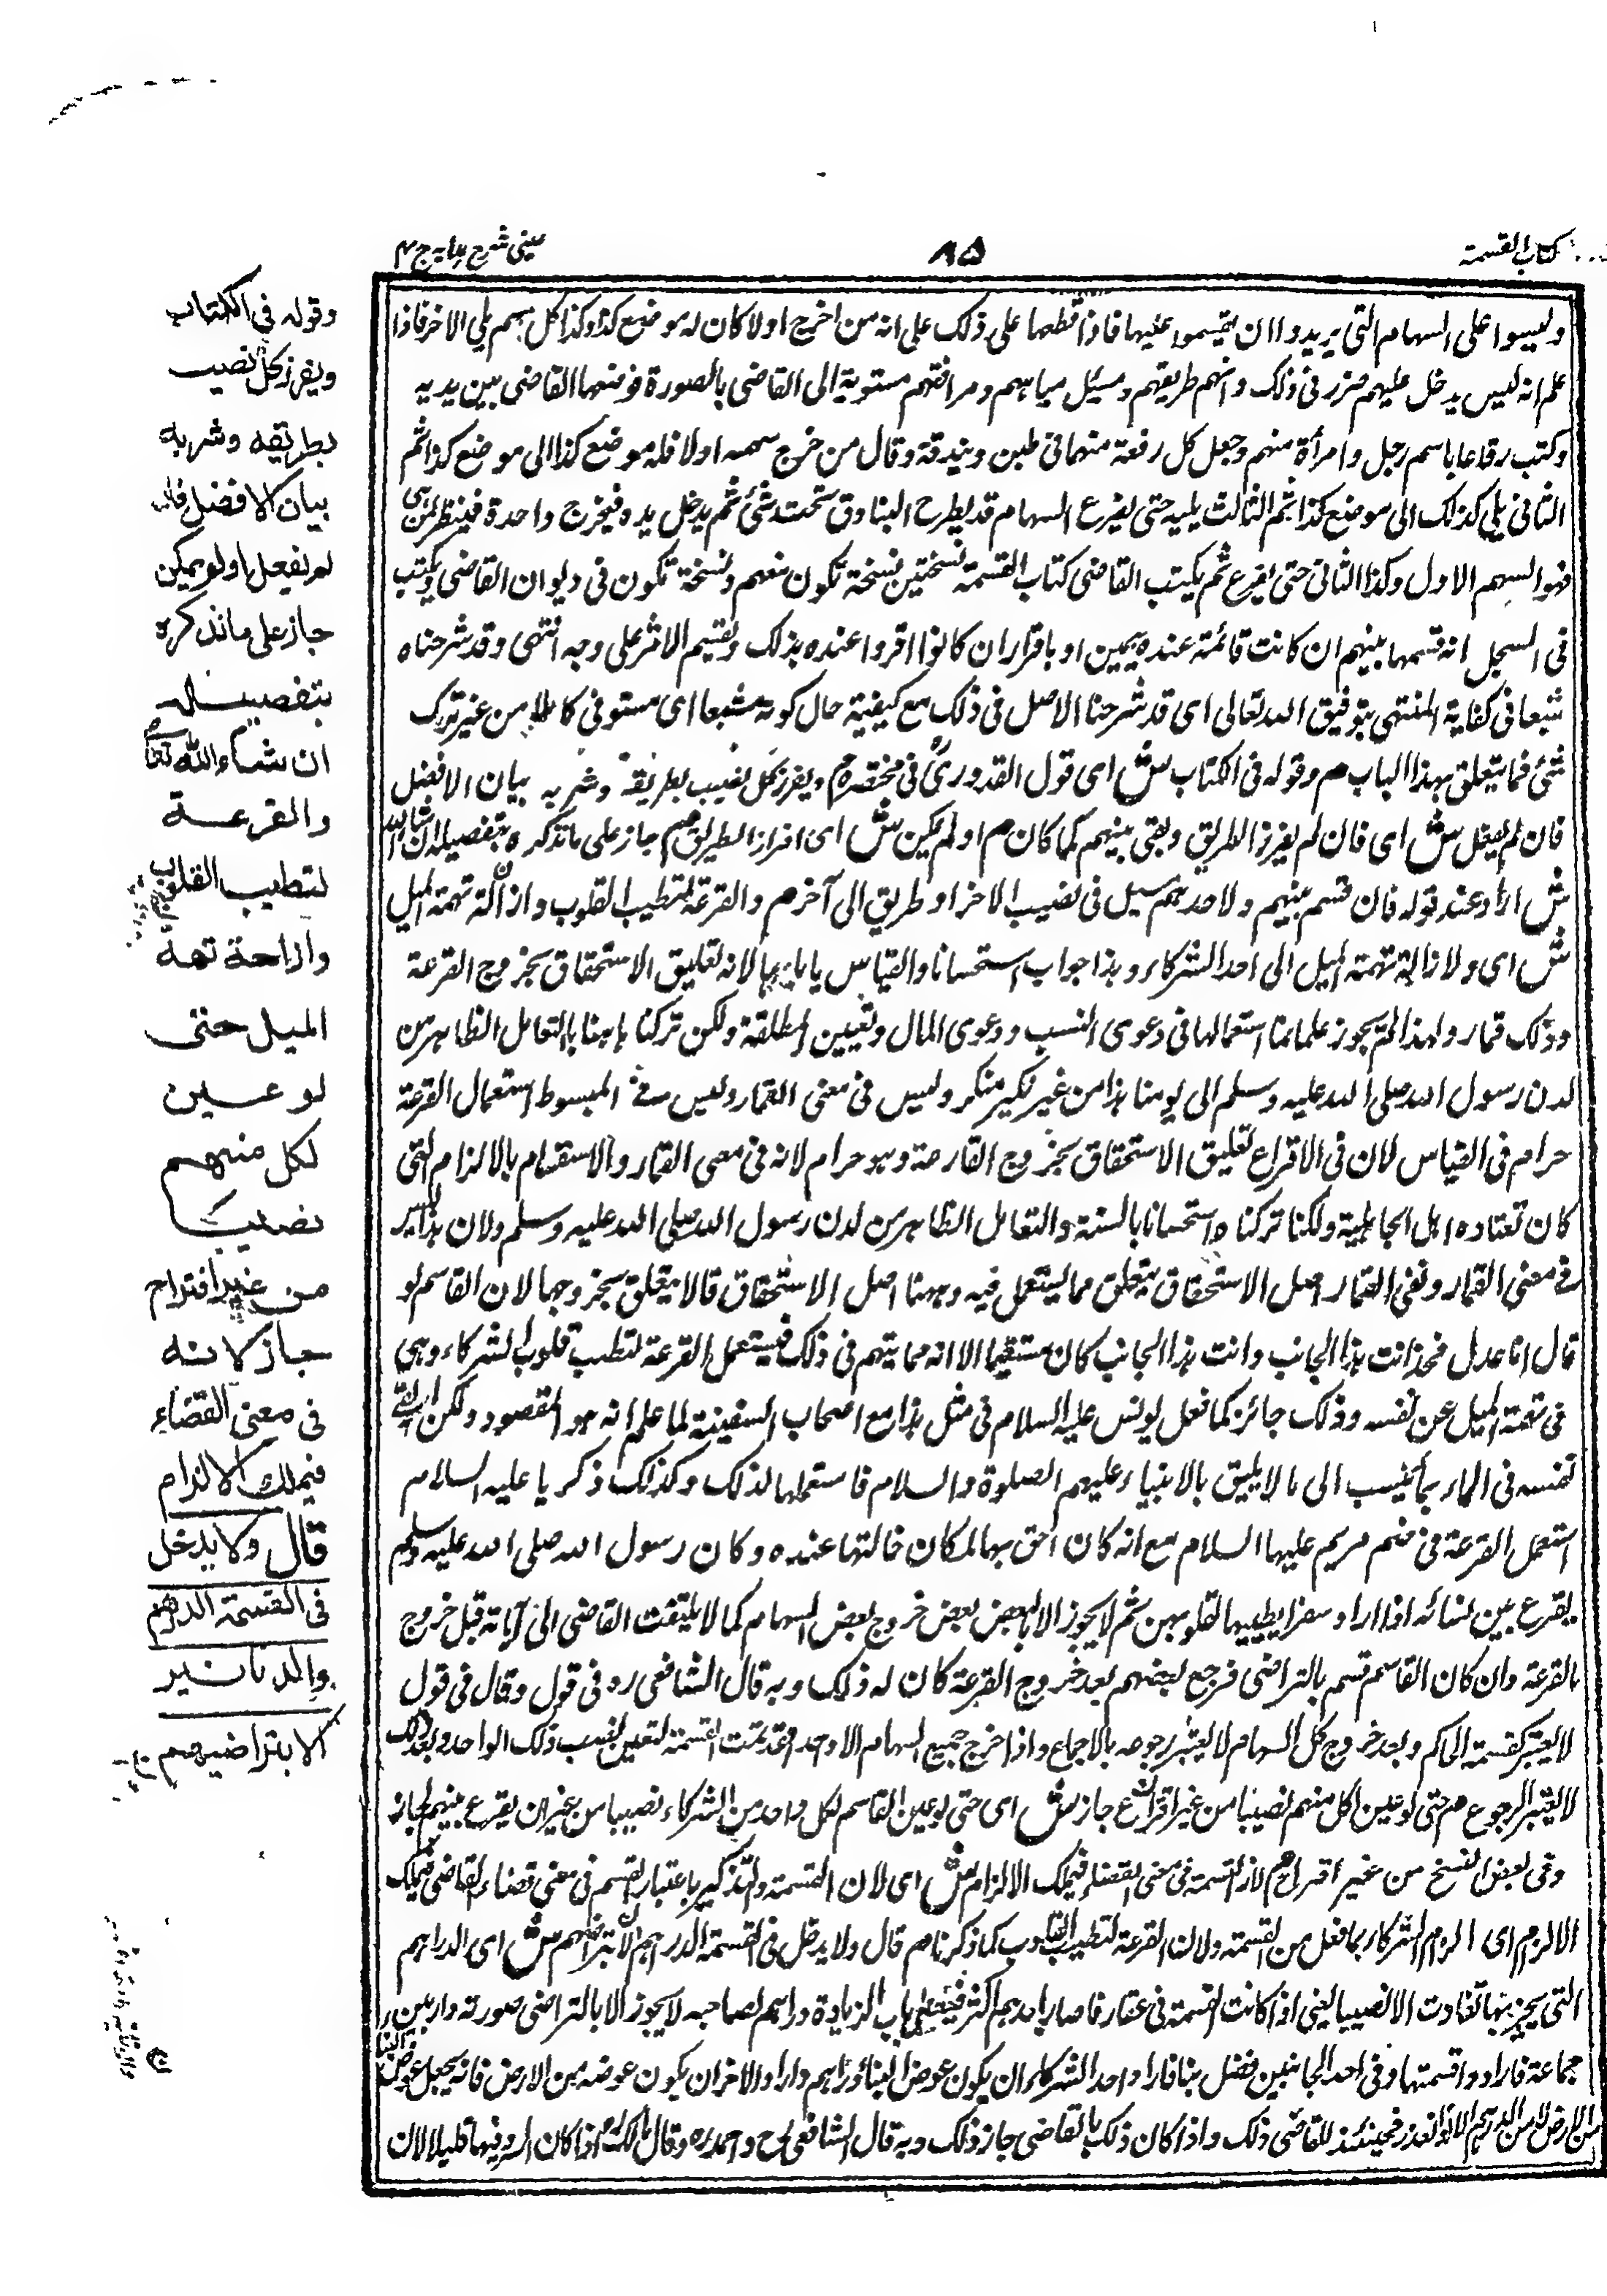 كتاب القسمة
٨٥
عيني شرح هدايه ج ٤
وليسوا على السهام التي يريدوا ان يقسموا عليها فاذا قطعها على ذلك على انه من اخرج اولا كان له موضع كذا وكذا كل سهم يلي الاخر فاذا
علم انه ليس يدخل عليهم ضرر في ذلك وانهم طريقهم ومسيل مياههم ومرافقهم مستوية الى القاضي بالصورة فوضعها القاضي بين يديه
وكتب رقاعا باسم رجل وامرأة منهم وجعل كل رقعة منها في طين وبندقة وقال من خرج سهمه اولا فله موضع كذا الى موضع كذا ثم
الثاني يلي كذلك الى موضع كذا ثم الثالث يليه حتى يفرغ السهام قد يطرح البنادق تحت شئ ثم يدخل يده فيخرج واحدة فينظر لمن هي
فهو السهم الاول وكذا الثاني حتى يفرغ ثم يكتب القاضي كتاب القسمة نسختين نسخة تكون معهم ونسخة تكون في ديوان القاضي ويكتب
في السجل انه قسمها بينهم ان كانت قائمة عنده بيمين او باقرار ان كانوا اقروا عنده بذلك ويقيم الامر على وجه انتهى وقد شرحناه
شبعا في كفاية المنتهي بتوفيق الله تعالى اى قد شرحنا الاصل في ذلك مع كيفية حال كونه مشبعا اى مستوفى كاملا من غير ترك
شئ فما يتعلق بهذا الباب م وقوله في الكتاب ش اى قول القدوري في مختصره م ويفرز كل نصيب بطريقه وشربه بيان الافضل
فان لم يفعل ش اى فان لم يفرز الطريق وبقي بينهم كما كان م او لم يكن ش اى افراز الطريق م جاز على ما نذكره بتفصيله ان شاء الله
ش اراد عند قوله فان قسم بينهم ولاحدهم سيل في نصيب الاخر او طريق الى آخره م والقرعة لتطيب القلوب وازالة تهمة الميل
ش اى ولازالة تهمة الميل الى احد الشركاء وهذا جواب استحسانا والقياس يأباها لانه تعليق الاستحقاق بخروج القرعة
وذلك قمار ولهذا لم يجوز علمائنا استعمالها في دعوى النسب ودعوى المال وتعيين المطلقة ولكن تركنا ها هنا بالتعامل الظاهر من
لدن رسول الله صلى الله عليه وسلم الى يومنا هذا من غير نكير منكر وليس في معنى القمار وليس في المبسوط استعمال القرعة
حرام في القياس لان في الاقراع تعليق الاستحقاق بخروج القارعة وهو حرام لانه في معنى القمار والاستقسام بالازلام التي
كان تعتاده اهل الجاهلية ولكنا تركناه استحسانا بالسنة والتعامل الظاهر من لدن رسول الله صلى الله عليه وسلم ولان هذا ليس
في معنى القمار وفي القمار اصل الاستحقاق يتعلق مما يستعمل فيه وههنا اصل الاستحقاق قالا يتعلق بخروجها لان القاسم لو
قال انا عدل فخذ انت هذا الجانب وانت هذا الجانب كان مستقيما الا انه مما يتهم في ذلك فيستعمل القرعة لتطيب قلوب الشركاء وهي
في تهمة الميل عن نفسه وذلك جائز كما فعل يونس عليه السلام في مثل هذا مع اصحاب السفينة لما علم انه هو المقصود ولكن لو القى
نفسه في الماء ربما ينسب الى ما لا يليق بالانبياء عليهم الصلوة والسلام فاستعملها لذلك وكذلك ذكريا عليه السلام
استعمل القرعة في ضم مريم عليها السلام مع انه كان احق بها لمكان خالتها عنده وكان رسول الله صلى الله عليه وسلم
يقرع بين نسائه اذا اراد سفرا يطيبها لقلوبهن ثم لا يجوز الا بالبعض بعض خروج بعض السهام كما لا يلتفت القاضي الى آبائه قبل خروج
بالقرعة وان كان القاسم قسم بالتراضي فرجع بعضهم بعد خروج القرعة كان له ذلك وبه قال الشافعي رو في قول وقال في قول
لا يعتبر كقسمة الحاكم وبعد خروج كل السهام لا يعتبر رجوعه بالاجماع واذا خرج جميع السهام الا واحد وقد تمت القسمة لتعين نصيب ذلك الواحد وبعد ذلك
لا يعتبر الرجوع م حتى لو عين لكل منهم نصيبا من غير اقراع جاز ش اى حتى لو عين القاسم لكل واحد من الشركاء نصيبا من غير ان يقرع بينهم لجاز
وفي بعض النسخ من غير اقتراع م لانه القسمة في معنى القضاء فيملك الالزام ش اى لان القسمة والتذكير باعتبار القسم في معنى قضاء القاضي فيملك
الالزام اى الزام الشركاء بما فعل من القسمة ولان القرعة لتطييب القلوب كما ذكرنا م قال ولا يدخل في القسمة الدراهم الا بتراضيهم ش اى الدراهم
التي يجبر بها تفاوت الانصبا يعني اذا كانت القسمة في عقار فاصاب احدهم اكثر فيعطي باب الزيادة دراهم لصاحبه لا يجوز الا بالتراضي صورته دار بين
جماعة فارادوا قسمتها وفي احد الجانبين فضل بنا فاراد احد الشركاء ان يكون عوض البناء دراهم واراد الاخر ان يكون عوضه من الارض فانه يجعل عوض البنا
من الارض لا من الدراهم الا اذا تعذر فحينئذ للقاضي ذلك واذا كان ذلك بالقاضي جاز ذلك وبه قال الشافعي رح واحمد ره وقال مالك اذا كان الرد فيها قليلا لان
وقوله في الكتاب
ويفرز كل نصيب
بطريقه وشربه
بيان الافضل فان
لم يفعل او لم يمكن
جاز على ما نذكره
بتفصيله
ان شاء الله تعالى
والقرعة
لتطييب القلوب
وازاحة تهمة
الميل حتى
لو عين
لكل منهم
نصيبا
من غير اقتراع
جاز لانه
في معنى القضاء
فيملك الالزام
قال ولا يدخل
في القسمة الدراهم
والدنانير
الا بتراضيهم